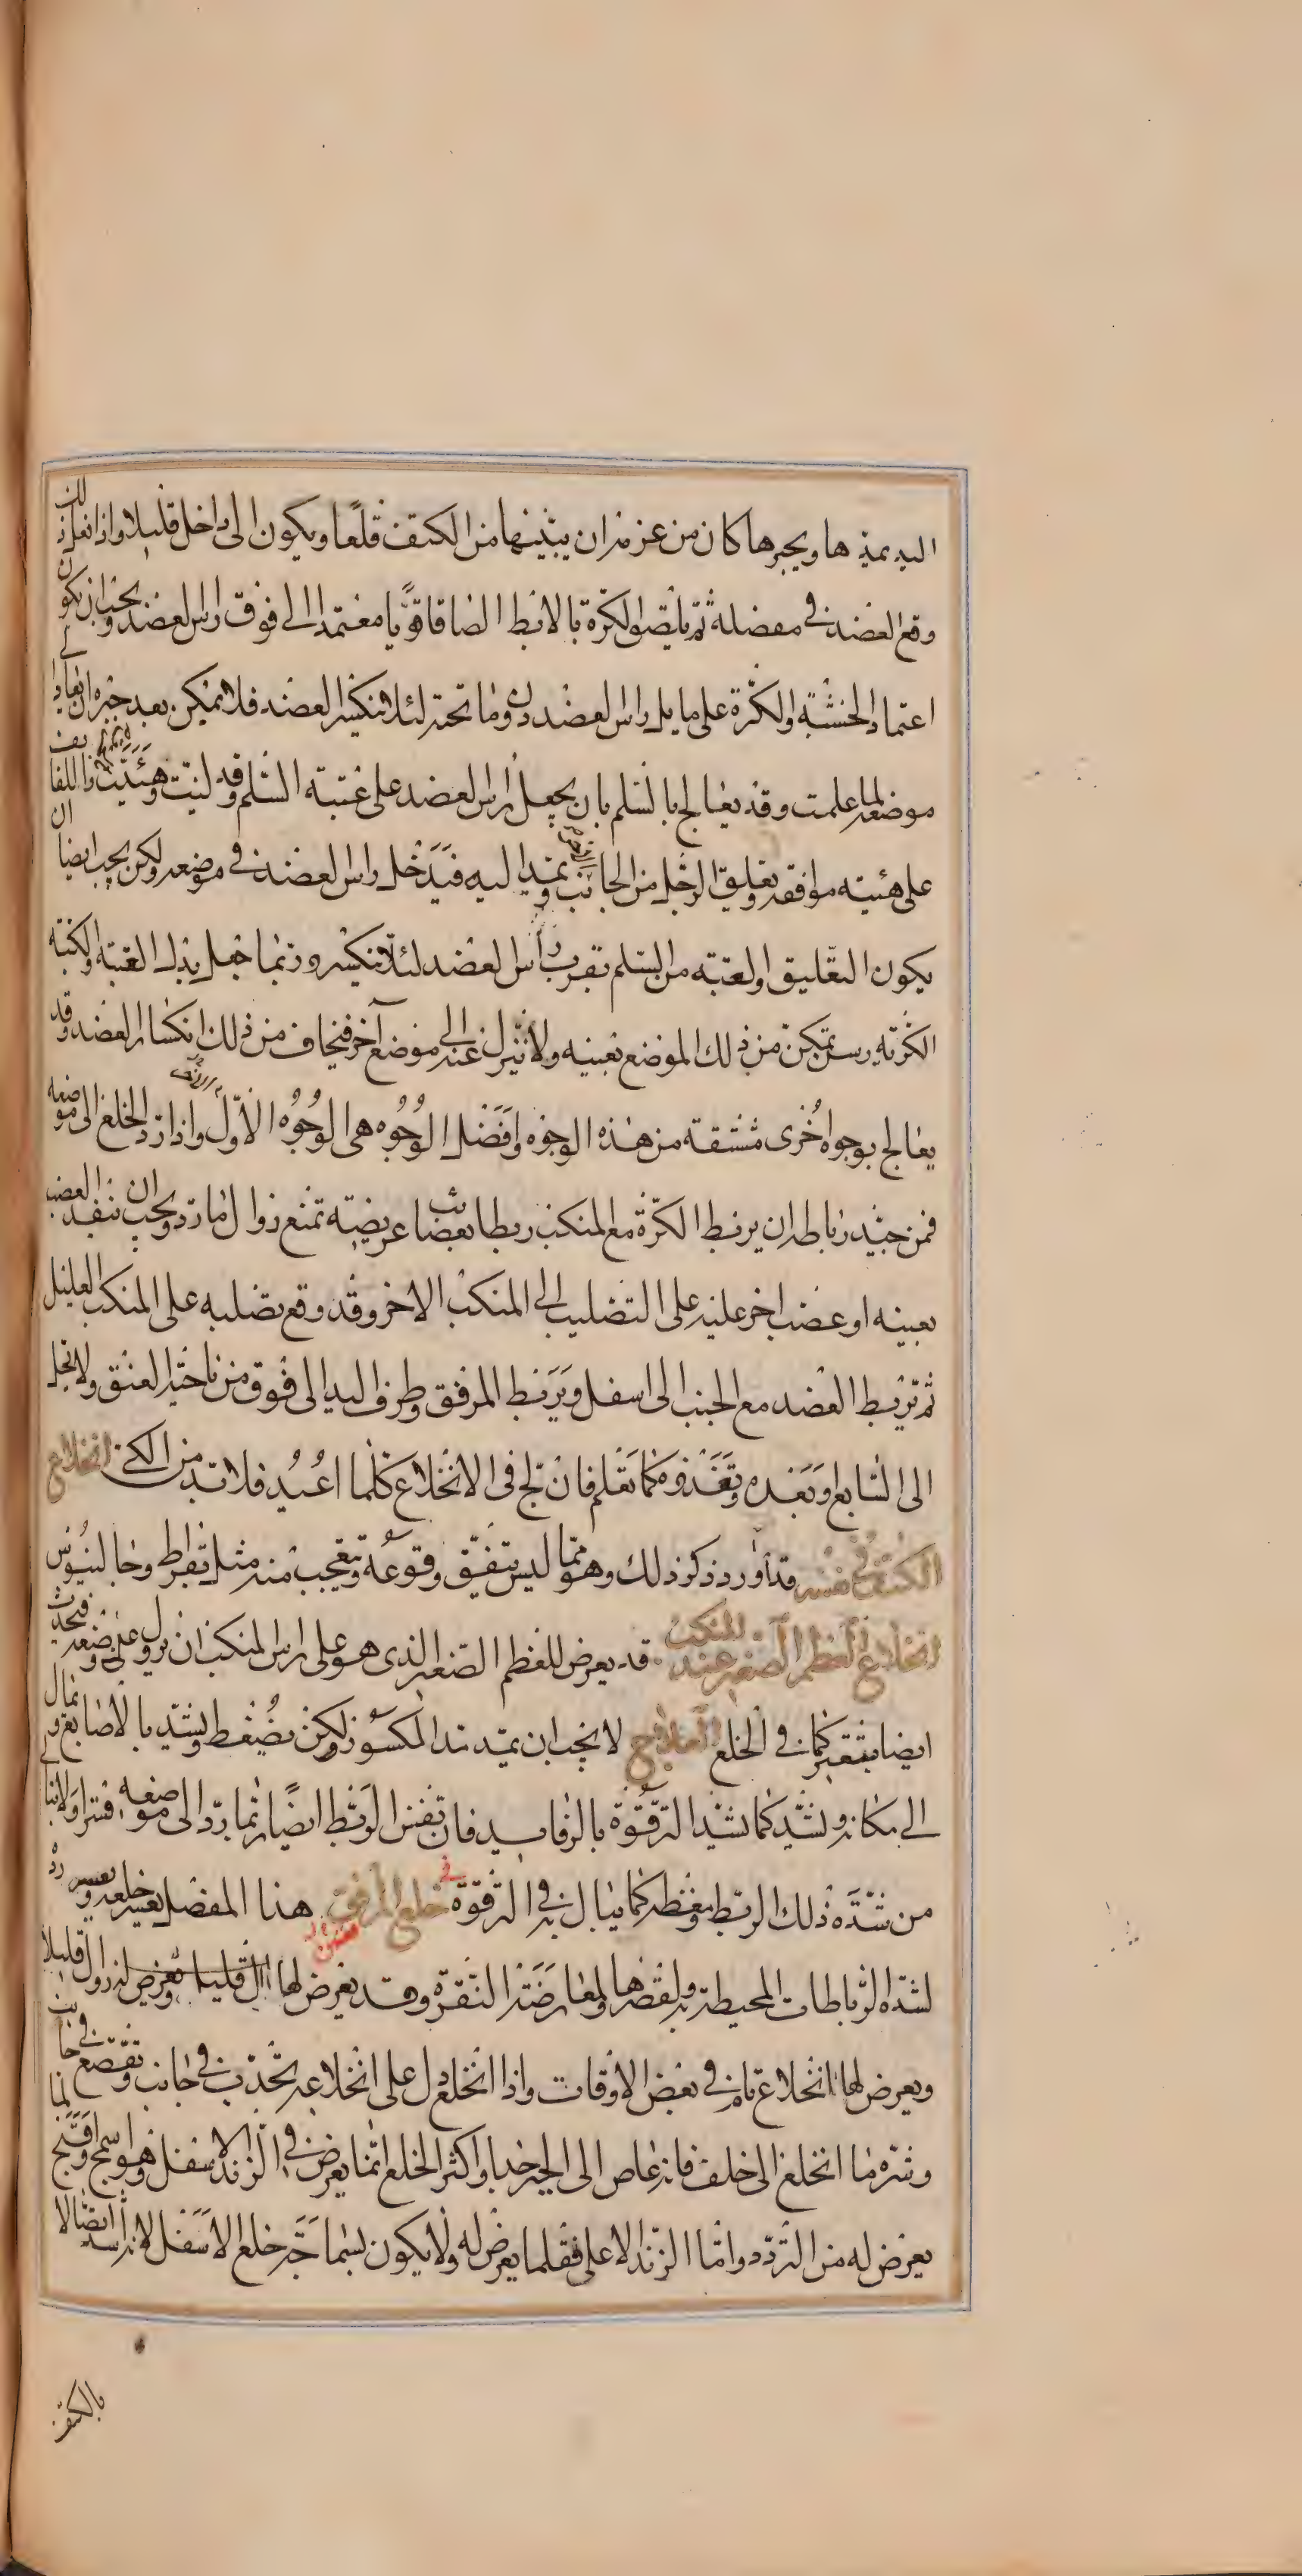 اليد يمدها ويجبرها كان من عزمه ان يبينها من الكتف قلعا ويكون الى داخل قليلا واذا فعل ذلك
وقع العضد في مفصله ثم يلصق الكرة بالابط الصاقا قويا معتمدا الى فوق راس العضد ويجب ان يكون
اعتماد الخشبة والكرة على ما يلي راس العضد دون ما تحته لئلا تنكسر العضد فلا يمكن بعد جبره ان يعاد الى
موضعه لما علمت وقد يعالج بالسلم بان يجعل راس العضد على عتبة السلم وقد لينت وهيئت واللفائف
على هيئة موافقة وتعليق الرجل من الجانب ويمد اليه فيدخل راس العضد في موضعه ولكن يجب ايضا ان
يكون التعليق او العتبة من السلم تقرب راس العضد لئلا تنكسر وربما جعل بدل العتبة والكبة
الكرة يتمكن من ذلك الموضع بعينه ولا تنزل عنه الى موضع آخر فيخاف من ذلك انكسار العضد وقد
يعالج بوجوه أخرى مشتقة من هذه الوجوه وافضل الوجوه هى الوجوه الاول واذا رد الخلع الى موضعه
فمن جيد رباطه ان يربط الكرة مع المنكب ربطا بعصائب عريضة تمنع زوال ما رد ويجب ان تنفد العصب
بعينه او عصب اخر عليه على التصليب الى المنكب الاخر وقد وقع تصليبه على المنكب العليل
ثم تربط العضد مع الجنب الى اسفل ويربط المرفق وطرف اليد الى فوق من ناحية العنق ولا تحل
الى السابع او بعده وتغذوه كما تعلم فان لج فى الانخلاع كلما اعيد فلا بد من الكي انخلاع
الكتف في نفسه قد اورد ذكر ذلك وهو مما ليس يتفق وقوعه وتعجب منه مثل بقراط وجالينوس
انخلاع العظم الصغير عند المنكب قد يعرض للعظم الصغير الذى هو على راس المنكب ان يزول عن موضعه فيحدث
ايضا تقعير كما في الخلع العلاج لا يجب ان يمد مد المكسور ولكن يضغط ويشد بالاصابع ويمال
الى مكانه ويشد كما تشد الترقوة بالرفايد فان نفس الربط ايضا ربما رد الى موضعه قسرا ولا تبالي
من شدة ذلك الربط وضغطه كما يبالى به فى الترقوة في خلع المرفق هذا المفصل يعسر خلعه ويعسر رده
لشدة الرباطات المحيطة به ولقصرها ولمعارضة النقرة وقد يعرض لها ان ال قليلا ويعرض له زوال قليلا
ويعرض لها انخلاع تام في بعض الاوقات واذا انخلع دل على انخلاعه تحدب في جانب وتقصع في جانب
وشره ما انخلع الى خلف فانه عاص الى الجبر جدا واكثر الخلع انما يعرض في الزند الاسفل وهو اسمج واقبح لما
يعرض له من التردد واما الزند الاعلى فقلما يعرض له ولا يكون بسماجة خلع الاسفل لانه اشد اتصالا
بالكتف